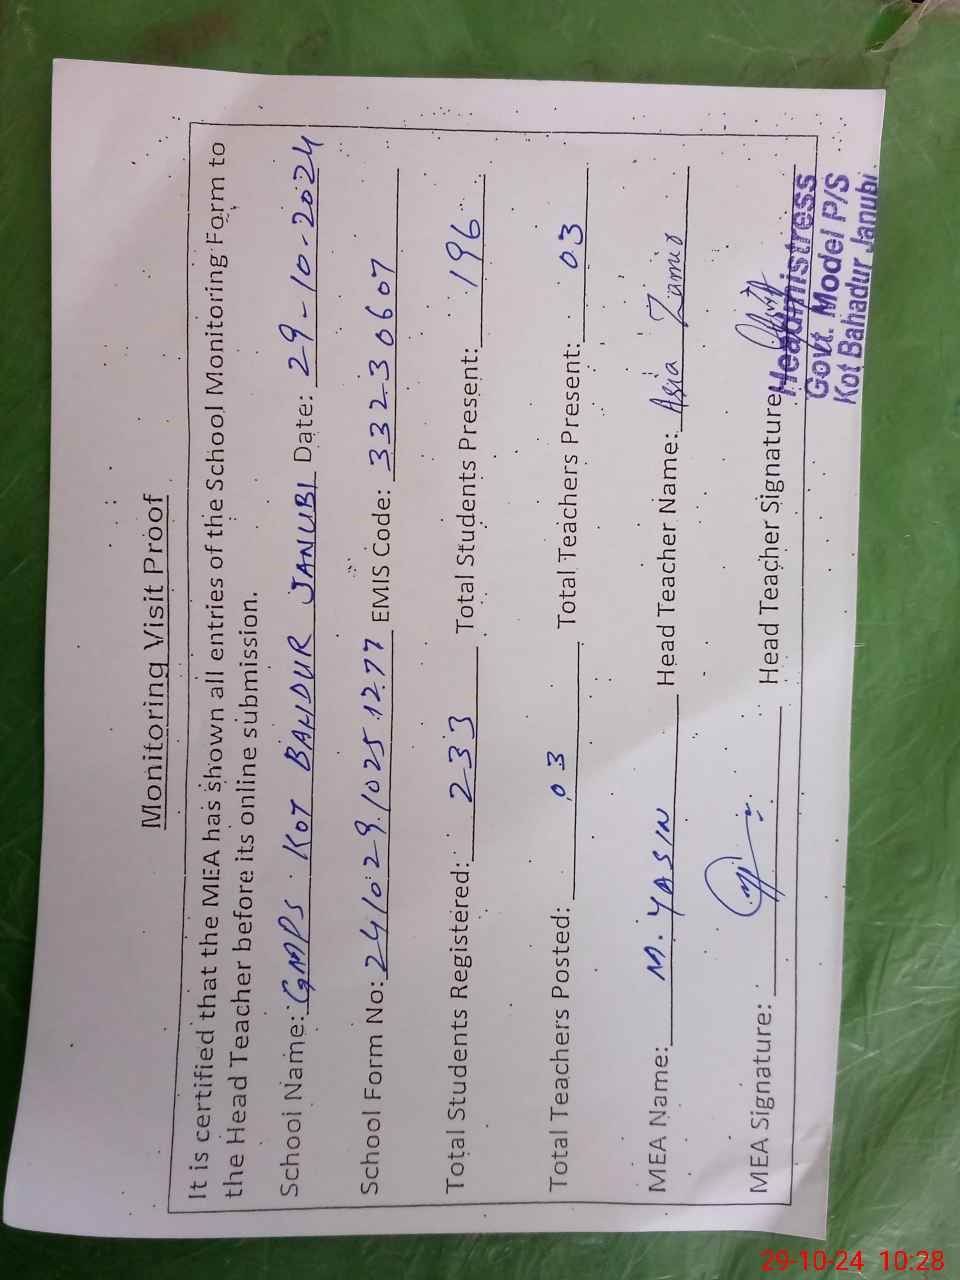 Monitoring Visit Proof
It is certified that the MEA has shown all entries of the School Monitoring Form to
the Head Teacher before its online submission.
School Name: GMPS KOT BAHDUR JANUBI Date: 29-10-2024
School Form No: 24102910251277 EMIS Code: 33230607
Total Students Registered: 233 Total Students Present: 196
Total Teachers Posted: 03 Total Teachers Present: 03
MEA Name: M. YASIN Head Teacher Name: Asia
MEA Signature: Head Teacher Signature
Headmistress
Govt. Model P/S
Kot Bahadur Janubi
29-10-24 10:28